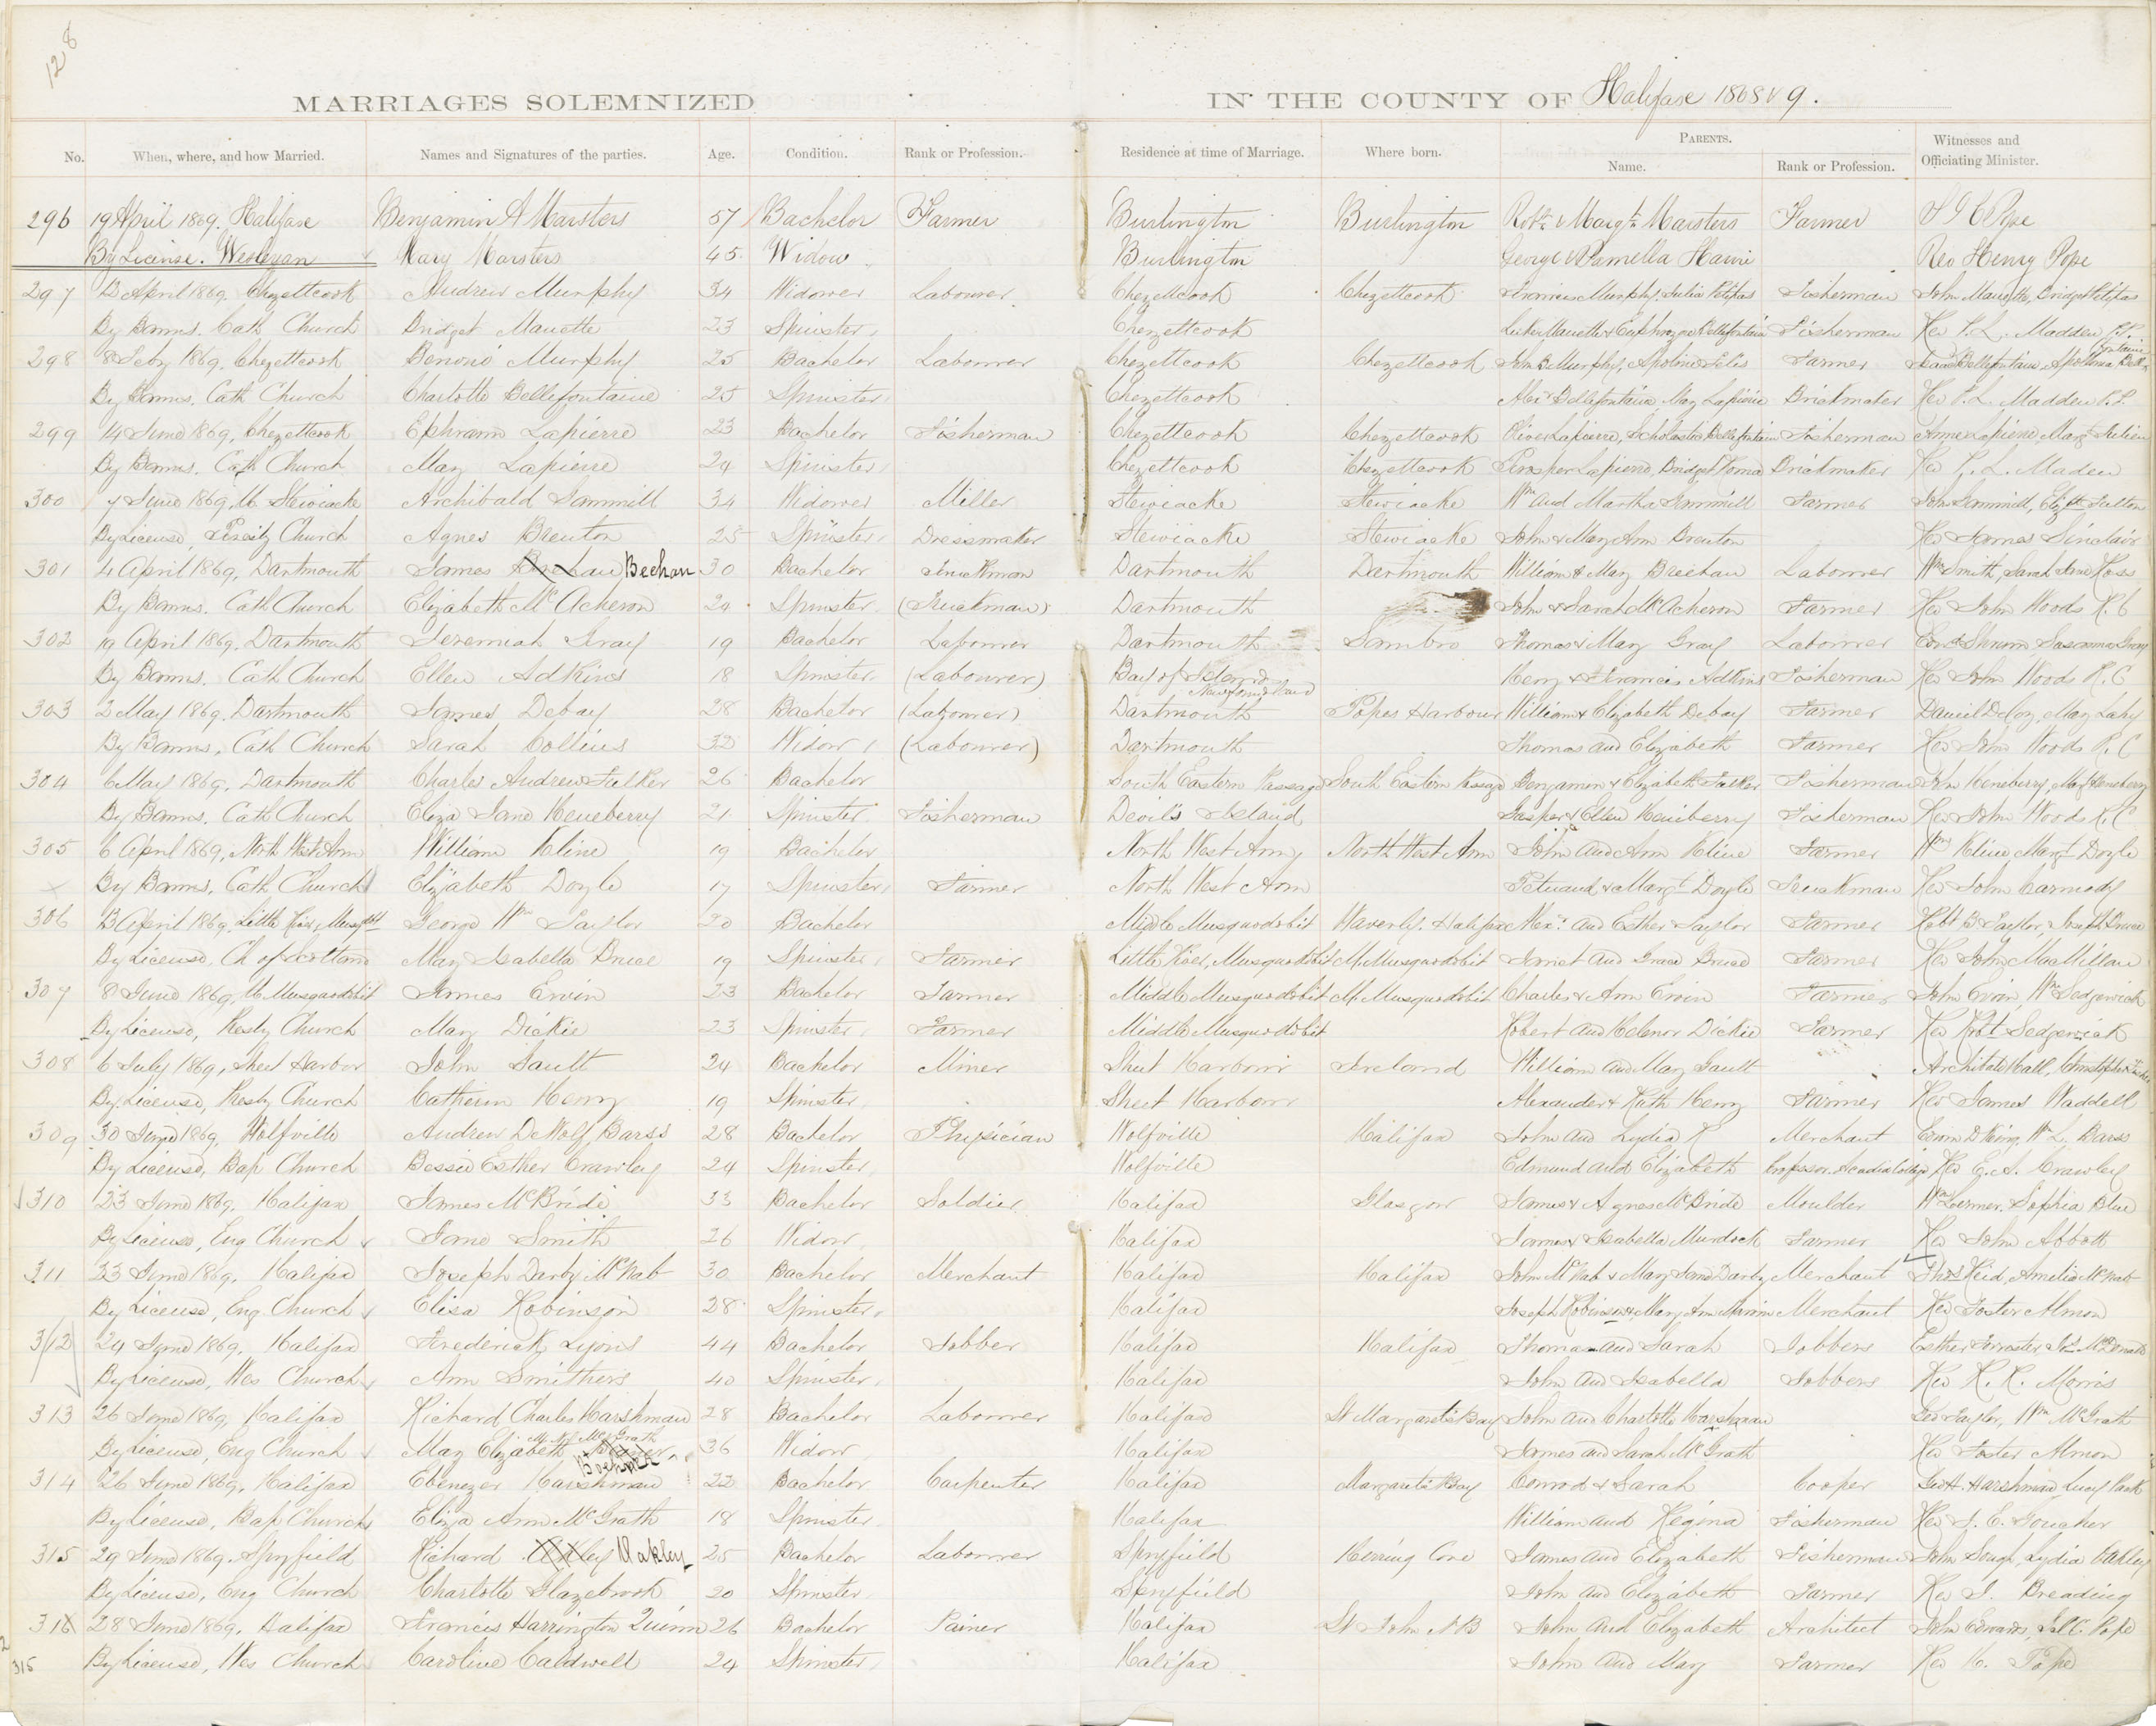 128
MARRIAGES SOLEMNIZED IN THE COUNTY OF Halifax 1868 & 9.
No. When, where, and how Married. Names and Signatures of the parties. Age. Condition. Rank or Profession. Residence at time of Marriage. Where born. PARENTS. Name. Rank or Profession. Witnesses and Officiating Minister.
296 19 April 1869. Halifax Benjamin A Marsters 57 Bachelor Farmer Burlington Burlington Robt & Margt Marsters Farmer Pope
By License. Wesleyan Mary Marsters 45 Widow Burlington George & Pamella Harvie Rev Henry Pope
297 13 April 1869, Chezettcook Andrew Murphy 34 Widower Labourer Chezettcook Chezettcook Francis Murphy, Julia Petipas Fisherman John Manette, Bridget Petipas
By Banns. Cath Church Bridget Manette 23 Spinster Chezettcook Manette & Euphrozine Bellefontain Fisherman Rev P. L. Madden P.P.
298 8 Feby 1869, Chezettcook Benonie Murphy 25 Bachelor Labourer Chezettcook Chezettcook John B Murphy, Apoline Farmer Bellefontaine, Apollonia Bellefontaine
By Banns, Cath Church Charlotte Bellefontaine 25 Spinster Chezettcook Alexr Bellefontaine, May Lapierre Brickmaker Rev P. L. Madden P.P.
299 14 June 1869, Chezettcook Ephraim Lapierre 23 Bachelor Fisherman Chezettcook Chezettcook Oliver Lapierre, Scholastic Bellefontain Fisherman Anne Lapierre, Margt Julien
By Banns. Cath Church Mary Lapierre 24 Spinster Chezettcook Chezettcook Prosper Lapierre, Bridget Roma Brickmaker Rev P. L. Maden
300 7 June 1869, U. Stewiacke Archibald Gammill 34 Widower Miller Stewiacke Stewiacke Wm and Martha Gammill Farmer John Gammill, Elizth Fulton
By License, Presby Church Agnes Brenton 25 Spinster Dressmaker Stewiacke Stewiacke John & Mary Ann Brenton Rev James Sinclair
301 4 April 1869, Dartmouth James Bechan 30 Bachelor Truckman Dartmouth Dartmouth William & May Breehan Labourer Wm Smith, Sarah Jane Ross
By Banns. Cath Church Elizabeth McAcheron 24 Spinster (Truckman) Dartmouth John & Sarah McAcheron Farmer Rev John Woods R.C
302 19 April 1869, Dartmouth Jeremiah Gray 19 Bachelor Labourer Dartmouth Sambro Thomas & Mary Gray Labourer Gray
By Banns. Cath Church Ellen Adkins 18 Spinster (Labourer) Bay of Island Newfoundland Henry & Francis Adkins Fisherman Rev John Woods R.C
303 2 May 1869, Dartmouth James Debay 28 Bachelor (Labourer) Dartmouth Popes Harbour William & Elizabeth Debay Farmer Daniel DeCoy, May Lahy
By Banns, Cath Church Sarah Collins 32 Widow (Labourer) Dartmouth Thomas and Elizabeth Farmer Rev John Woods R.C
304 6 May 1869, Dartmouth Charles Andrew Fulker 26 Bachelor South Eastern Passage South Eastern Passage Benjamin & Elizabeth Fulker Fisherman John Heneberry, Margt Heneberry
By Banns, Cath Church Eliza Jane Heneberry 21 Spinster Fisherman Devil's Island Gasper & Ellen Heneberry Fisherman Rev John Woods R.C
305 6 April 1869, North West Arm William Kline 19 Bachelor North West Arm North West Arm John and Ann Kline Farmer Wm Kline, Margt Doyle
By Banns, Cath Church Elizabeth Doyle 17 Spinster Farmer North West Arm & Margt Doyle Truckman Rev John Carmody
306 13 April 1869, Little River, Musqdbt George Wm Taylor 20 Bachelor Middle Musquodobit Waverly, Halifax Alexr and Esther Taylor Farmer Robt B Taylor, Joseph Bruce
By License, Ch of Scotland May Isabella Bruce 19 Spinster Farmer Little River, Musquodobit M. Musquodobit Janet and Grace Bruce Farmer Rev John MacMillan
307 8 June 1869, M. Musquodobit James Ervin 23 Bachelor Farmer Middle Musquodobit M. Musquodobit Charles & Ann Ervin Farmer John Ervin, Wm Sedgewick
By License, Presby Church May Dickie 23 Spinster Farmer Middle Musquodobit Robert and Helenor Dickie Farmer Rev Robt Sedgewick
308 6 July 1869, Sheet Harbor John Gault 24 Bachelor Miner Sheet Harbour Ireland William and Mary Gault Hall, Christopher
By License, Presby Church Catherine Henry 19 Spinster Sheet Harbour Alexander & Ruth Henry Farmer Rev James Waddell
309 30 June 1869, Wolfville Andrew DeWolf Barss 28 Bachelor Physician Wolfville Halifax John and Lydia K Merchant D King, W L. Barss
By License, Bap Church Bessie Esther Crawley 24 Spinster Wolfville Edmund and Elizabeth Professor Acadia College Rev E. A. Crawley
310 23 June 1869, Halifax James McBride 33 Bachelor Soldier Halifax Glasgow James & Agnes McBride Moulder Sophia Blue
By License, Eng Church Jane Smith 26 Widow Halifax James & Isabella Murdock Farmer Rev John Abbott
311 23 June 1869, Halifax Joseph Darby McNab 30 Bachelor Merchant Halifax Halifax John McNab & Mary Jane Darby Merchant Thos Reid, Amelia McNab
By License, Eng. Church Elisa Robinson 28 Spinster Halifax Joseph Robinson & Mary Ann Merchant Rev Foster Almon
312 24 June 1869, Halifax Frederick Lyons 44 Bachelor Jobber Halifax Halifax Thomas and Sarah Jobbers Esther Forrester McDonald
By License, Wes Church Ann Smithers 40 Spinster Halifax John and Isabella Jobbers Rev R. R. Morris
313 26 June 1869, Halifax Richard Charles Harshman 28 Bachelor Labourer Halifax St Margarets Bay John and Charlotte Harshman Geo Taylor, Wm McGrath
By License, Eng Church May Elizabeth McGrath 36 Widow Halifax James and Sarah McGrath Rev Foster Almon
314 26 June 1869, Halifax Ebenezer Harshman 22 Bachelor Carpenter Halifax Margarets Bay Conrod & Sarah Cooper Geo H. Harshman, Lucy
By License, Bap Church Eliza Ann McGrath 18 Spinster Halifax William and Regina Fisherman Rev J. E. Goucher
315 29 June 1869, Spryfield Richard Oakley 25 Bachelor Labourer Spryfield Herring Cove James and Elizabeth Fisherman John Lydia Oakley
By License, Eng Church Charlotte Glazebrook 20 Spinster Spryfield John and Elizabeth Farmer Rev J. Breading
316 28 June 1869, Halifax Francis Harrington Quinn 26 Bachelor Painer Halifax St John NB John and Elizabeth Architect John Edwards, Pope
315 By License, Wes Church Caroline Caldwell 24 Spinster Halifax John and May Farmer Rev H. Pope